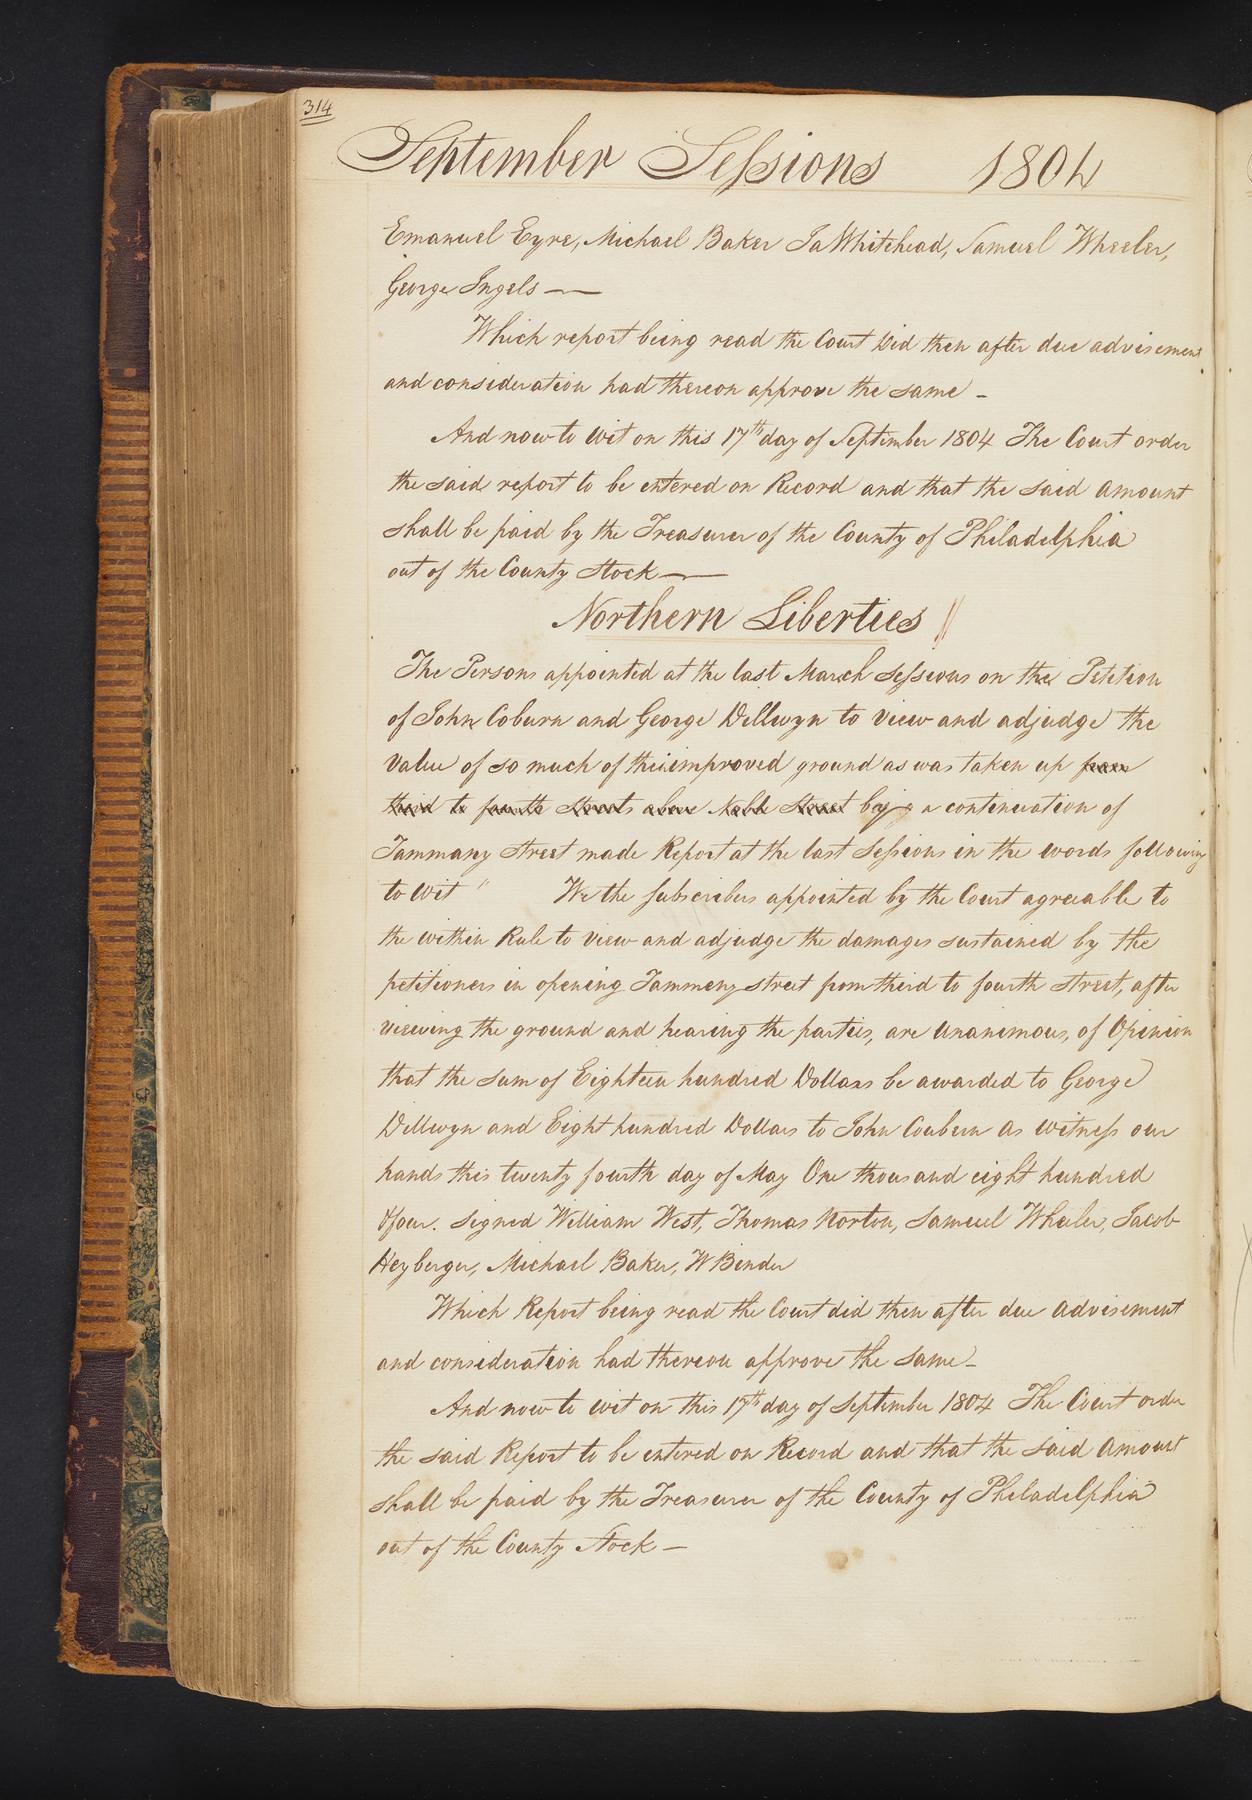 314
September Sessions 1804
Emanuel Eyre, Michael Baker Ja Whitehead, Samuel Wheeler,
George Ingels —
Which report being read the Court did then after due advisement
and consideration had thereon approve the same -
And now to wit on this 17th day of September 1804 The Court order
the said report to be entered on Record and that the said amount
shall be paid by the Treasurer of the County of Philadelphia
out of the County Stock —
Northern Liberties //
The Persons appointed at the last March Sessions on the Petition
of John Coburn and George Dillwyn to view and adjudge the
value of so much of their improved ground as was taken up from
third to fourth Streets above Noble Street being a continuation of
Tammany Street made Report at the last Sessions in the words following
to wit " We the subscribers appointed by the Court agreeable to
the within Rule to view and adjudge the damages sustained by the
petitioners in opening Tammeny street from third to fourth street, after
viewing the ground and hearing the parties, are Unanimous, of Opinion
that the sum of Eighteen hundred Dollars be awarded to George
Dillwyn and Eight hundred Dollars to John Couburn As Witness our
hands this twenty fourth day of May One thousand eight hundred
& four. Signed William West, Thomas Norton, Samuel Wheeler, Jacob
Heyberger, Michael Baker, W Binder
Which Report being read the Court did then after due advisement
and consideration had thereon approve the same -
And now to wit on this 17th day of September 1804 The Court order
the said Report to be entered on Record and that the said Amount
shall be paid by the Treasurer of the County of Philadelphia
out of the County Stock —